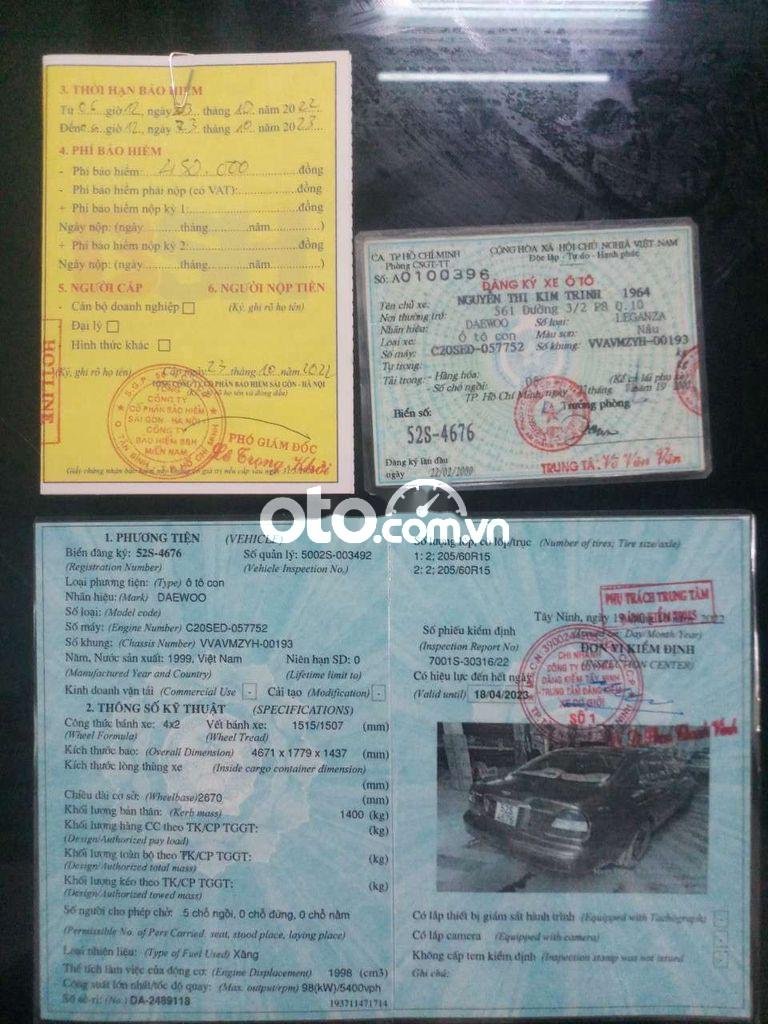 3. THỜI HẠN BẢO HIỂM
Từ 06 giờ 12, ngày 23 tháng 10 năm 2022
Đến 06 giờ 12, ngày 23 tháng 10 năm 2023
4. PHÍ BẢO HIỂM
- Phí bảo hiểm: 480.000 đồng
- Phí bảo hiểm phải nộp (có VAT): đồng
+ Phí bảo hiểm nộp kỳ 1: đồng
Ngày nộp: (ngày tháng năm )
+ Phí bảo hiểm nộp kỳ 2: đồng
Ngày nộp: (ngày tháng năm )
5. NGƯỜI CẤP 6. NGƯỜI NỘP TIỀN
- Cán bộ doanh nghiệp (Ký, ghi rõ họ tên)
- Đại lý
- Hình thức khác
(Ký, ghi rõ họ tên) Cấp ngày 23 tháng 10 năm 2022
TỔNG CÔNG TY CỔ PHẦN BẢO HIỂM SÀI GÒN - HÀ NỘI
HOTLINE
TỔNG
CÔNG TY
CỔ PHẦN BẢO HIỂM
SÀI GÒN - HÀ NỘI
CÔNG TY
BẢO HIỂM BSH
MIỀN NAM
PHÓ GIÁM ĐỐC
Lê Trọng Khôi
CA TP HỒ CHÍ MINH
Phòng CSGT-TT
CỘNG HÒA XÃ HỘI CHỦ NGHĨA VIỆT NAM
Độc lập - Tự do - Hạnh phúc
Số: A0100396
ĐĂNG KÝ XE ÔTÔ
Tên chủ xe: NGUYỄN THỊ KIM TRINH 1964
Nơi thường trú: 561 Đường 3/2 P8 Q.10
Nhãn hiệu: DAEWOO Số loại: LEGANZA
Loại xe: Ô tô con Màu sơn: Nâu
Số máy: C20SED-057752 Số khung: VVAVMZYH-00193
Tự trọng:
Tải trọng: - Hàng hóa:
- Số chỗ ngồi: 05 (Kể cả lái phụ xe)
TP. Hồ Chí Minh, ngày tháng năm
Trưởng phòng
Biển số:
52S-4676
Đăng ký lần đầu
ngày 22/02/2000
TRUNG TÁ: Võ Văn Vân
oto.com.vn
1. PHƯƠNG TIỆN (VEHICLE)
Biển đăng ký: 52S-4676 Số quản lý: 5002S-003492
(Registration Number) (Vehicle Inspection No.)
Loại phương tiện: (Type) ô tô con
Nhãn hiệu: (Mark) DAEWOO
Số loại: (Model code)
Số máy: (Engine Number) C20SED-057752
Số khung: (Chassis Number) VVAVMZYH-00193
Năm, Nước sản xuất: 1999, Việt Nam Niên hạn SD: 0
(Manufactured Year and Country) (Lifetime limit to)
Kinh doanh vận tải (Commercial Use) - Cải tạo (Modification) -
2. THÔNG SỐ KỸ THUẬT (SPECIFICATIONS)
Công thức bánh xe: 4x2 Vết bánh xe: 1515/1507 (mm)
(Wheel Formula) (Wheel Tread)
Kích thước bao: (Overall Dimension) 4671 x 1779 x 1437 (mm)
Kích thước lòng thùng xe (Inside cargo container dimension)
(mm)
Chiều dài cơ sở: (Wheelbase) 2670 (mm)
Khối lượng bản thân: (Kerb mass) 1400 (kg)
Khối lượng hàng CC theo TK/CP TGGT: (kg)
(Design/Authorized pay load)
Khối lượng toàn bộ theo TK/CP TGGT: (kg)
(Design/Authorized total mass)
Khối lượng kéo theo TK/CP TGGT: (kg)
(Design/Authorized towed mass)
Số người cho phép chở: 5 chỗ ngồi, 0 chỗ đứng, 0 chỗ nằm
(Permissible No. of Pers Carried: seat, stood place, laying place)
Loại nhiên liệu: (Type of Fuel Used) Xăng
Thể tích làm việc của động cơ: (Engine Displacement) 1998 (cm3)
Công suất lớn nhất/tốc độ quay: (Max. output/rpm) 98(kW)/5400vph
Số sê-ri: (No.) DA-2489118 193711471714
Số lượng lốp, cỡ lốp/trục (Number of tires; Tire size/axle)
1: 2; 205/60R15
2: 2; 205/60R15
PHỤ TRÁCH TRUNG TÂM
Tây Ninh, ngày
(Issued on: Day/Month/Year)
Số phiếu kiểm định
(Inspection Report No)
7001S-30316/22
ĐƠN VỊ KIỂM ĐỊNH
(INSPECTION CENTER)
Có hiệu lực đến hết ngày
(Valid until) 18/04/2023
CHI NHÁNH
CÔNG TY
ĐĂNG KIỂM TÂY NINH
TRUNG TÂM ĐĂNG KIỂM
XE CƠ GIỚI
SỐ 1
Có lắp thiết bị giám sát hành trình (Equipped with Tachograph)
Có lắp camera (Equipped with camera)
Không cấp tem kiểm định (Inspection stamp was not issued)
Ghi chú: